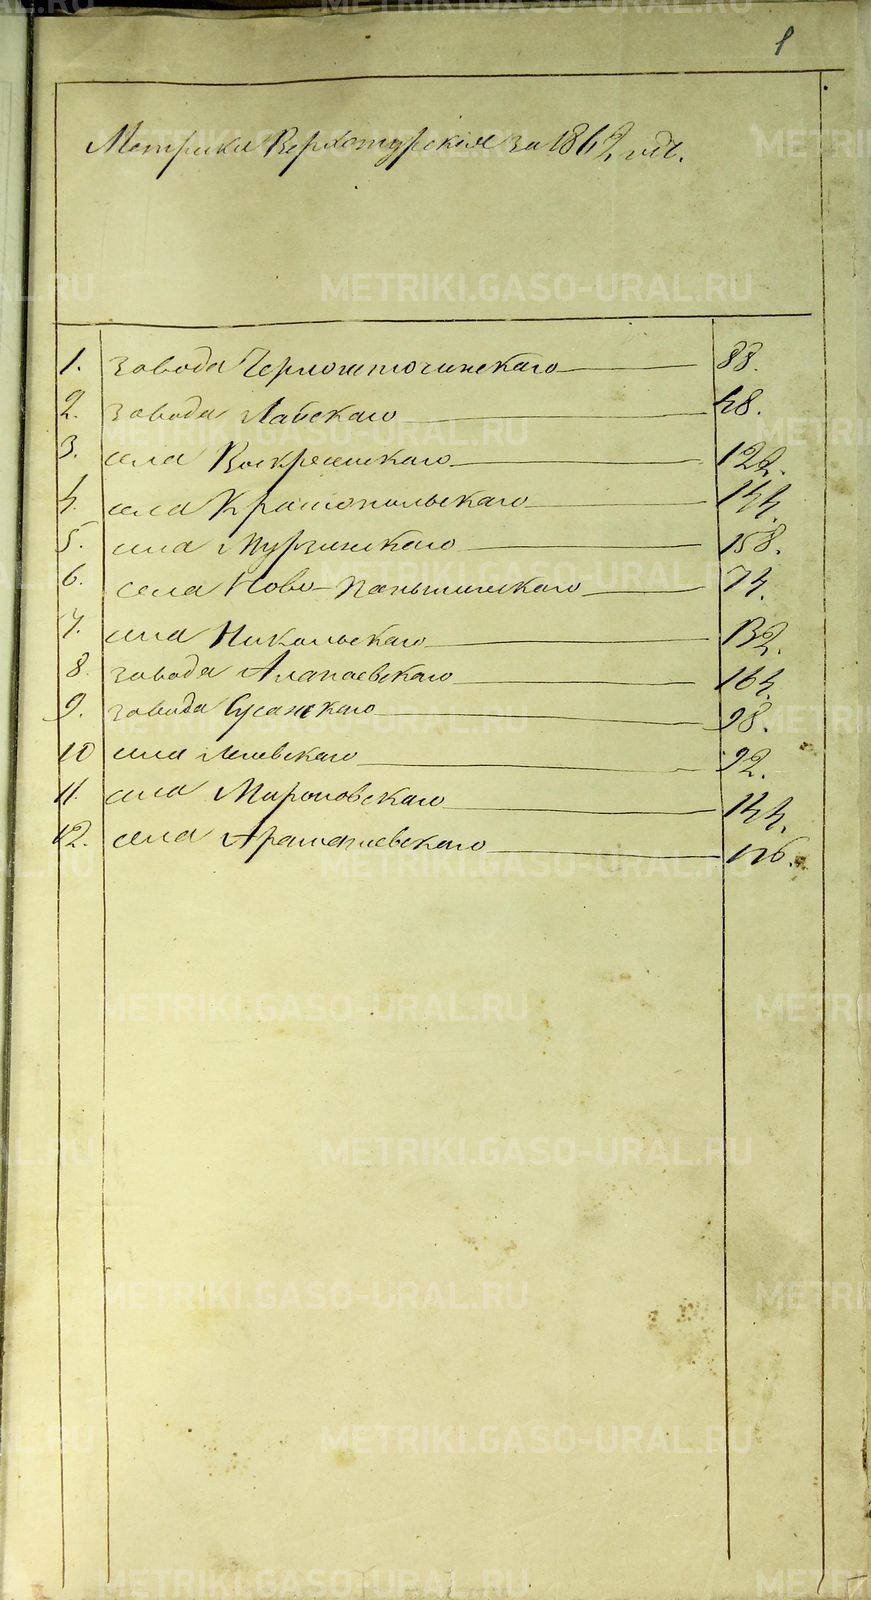 1
Метрика Верхотурская за 1862 годъ.
1. завода Черноисточинскаго 88.
2. завода Лайскаго 48.
3. села Воскресенскаго 122.
4. села Краснопольскаго 144.
5. села Мурзинскаго 158.
6. села Ново-Паньшинскаго 74.
7. села Никольскаго 132.
8. завода Алапаевскаго 164.
9. завода Сусанскаго 98.
10 села 92.
11. села Мироновскаго 144.
12. села Арамашевскаго
METRIKI.GASO-URAL.RU